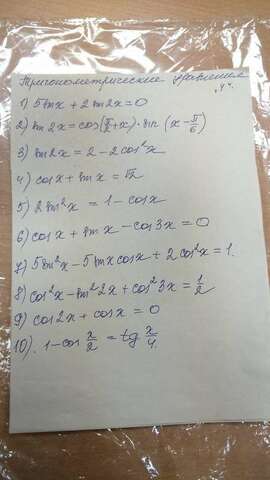 Тригонометрические уравнения
"4".
1) 5 sin x + 2 sin 2x = 0
2) sin 2x = cos(π/2 + x) · sin (x − π/6)
3) sin 2x = 2 − 2cos²x
4) cos x + sin x = √2
5) 2 sin²x = 1 − cos x
6) cos x + sin x − cos 3x = 0
7) 5 sin²x − 5 sin x cos x + 2 cos²x = 1.
8) cos²x − sin²2x + cos²3x = 1/2
9) cos 2x + cos x = 0
10). 1 − cos x/2 = tg x/4